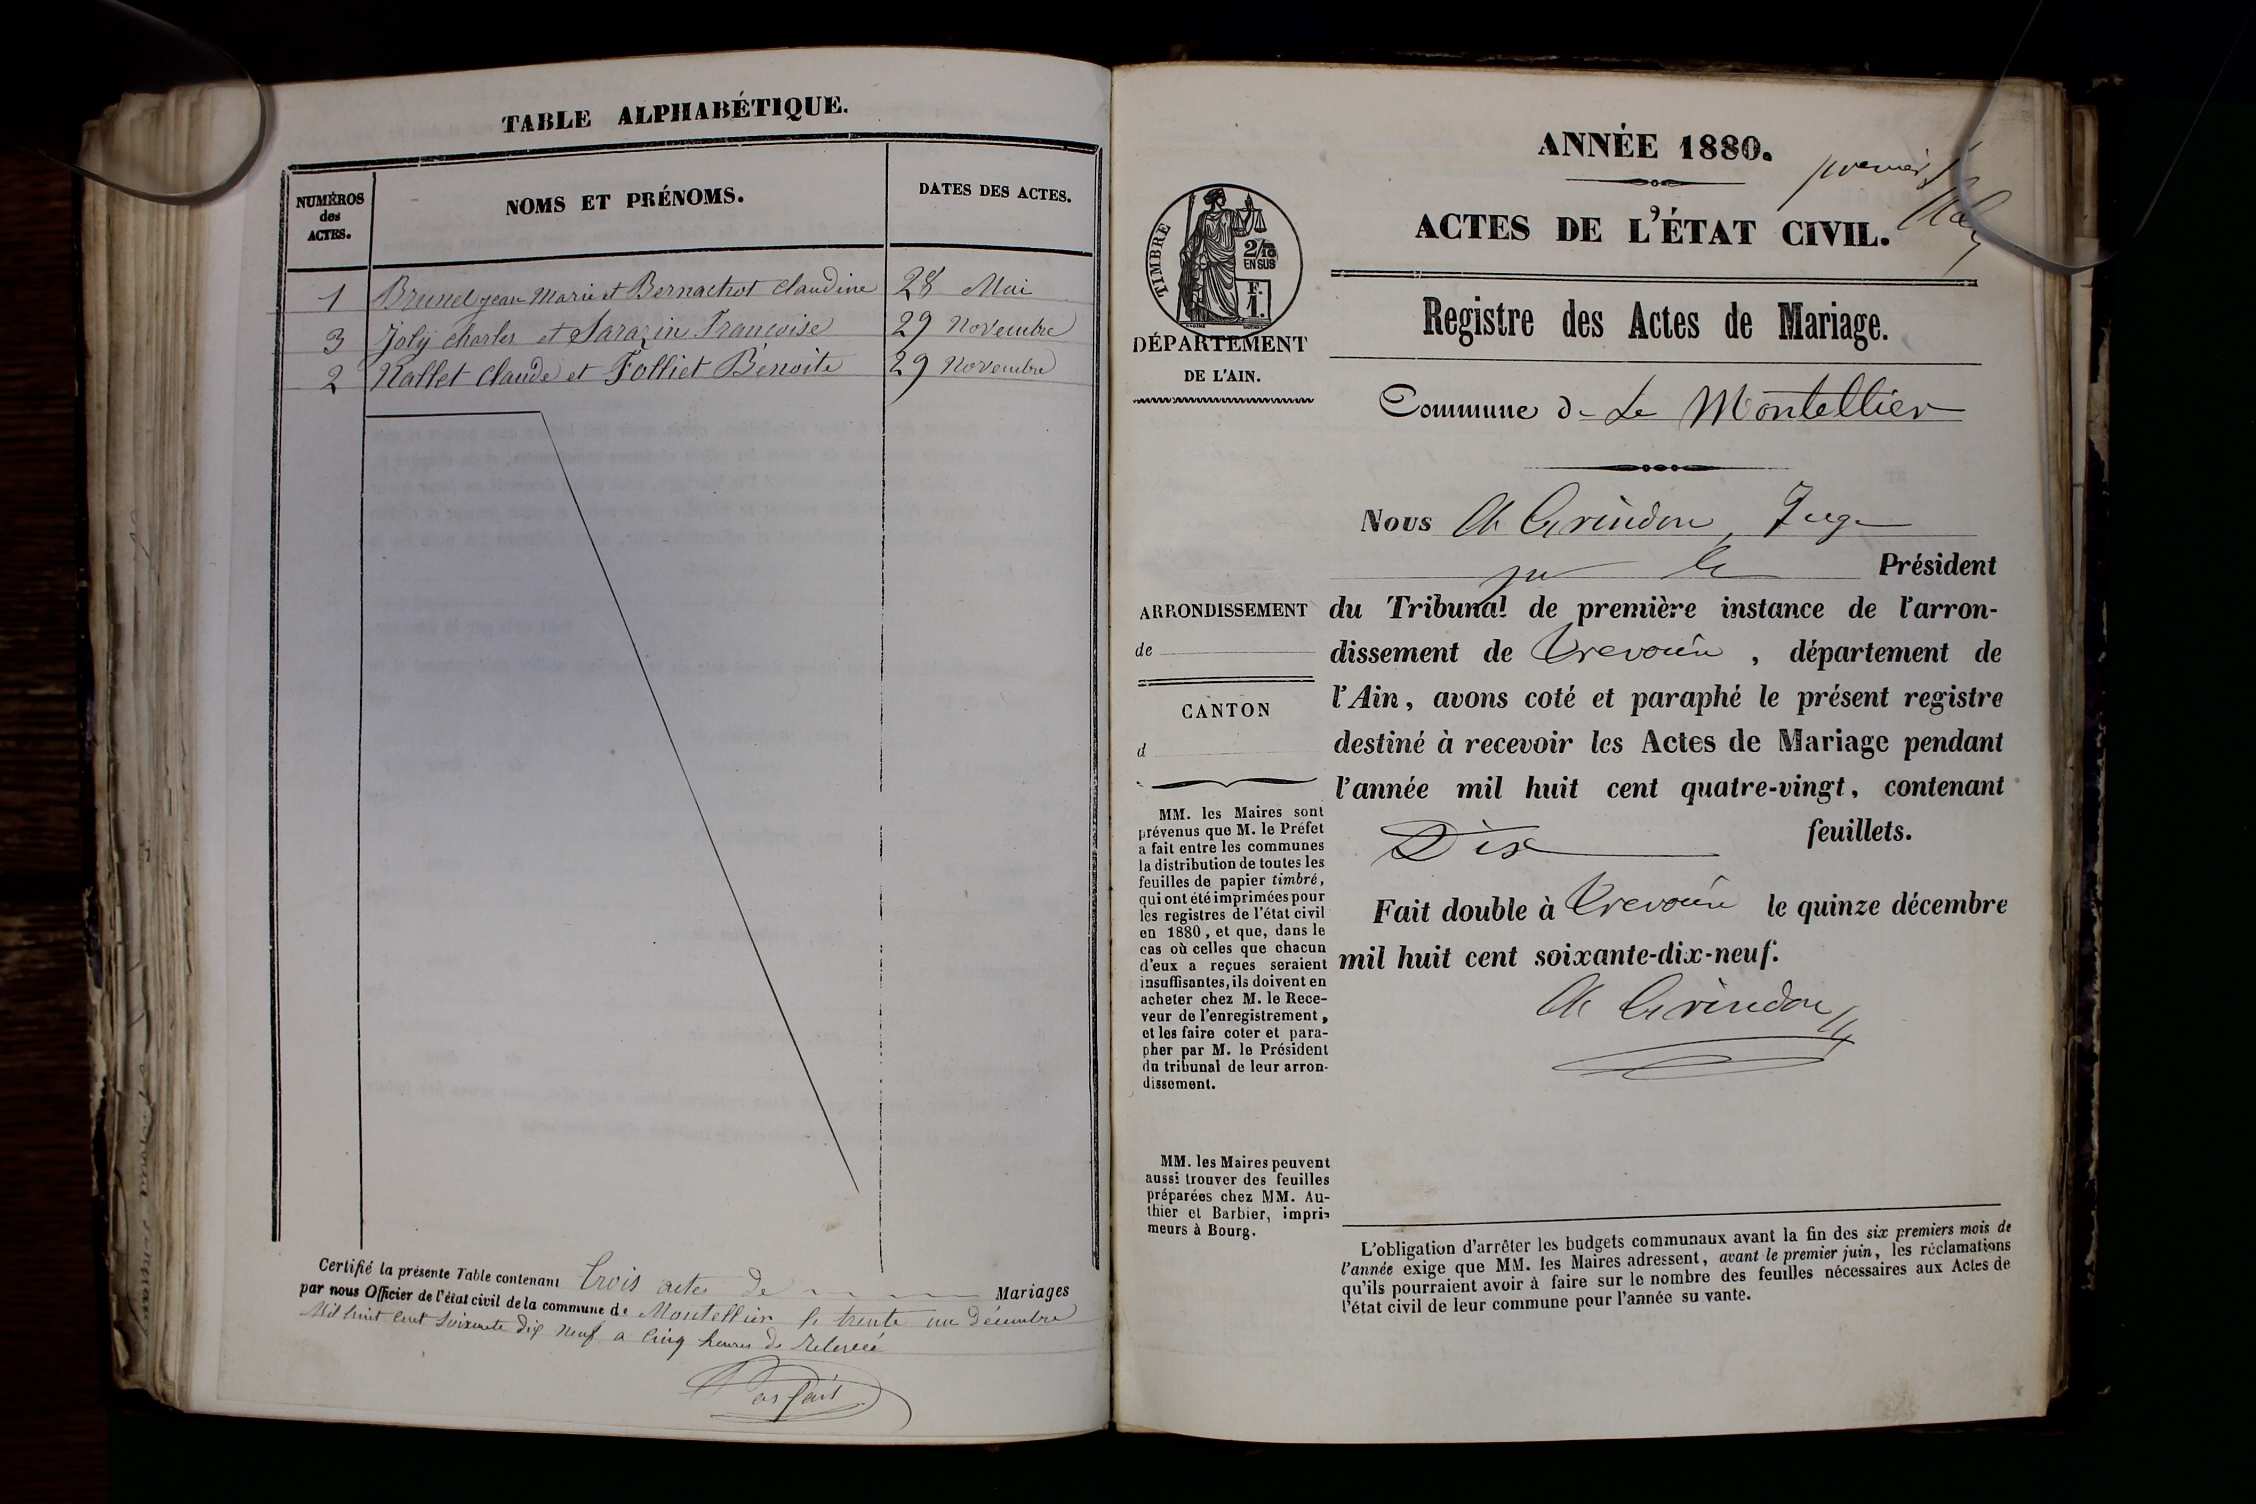 TABLE ALPHABÉTIQUE.
NUMÉROS
des
ACTES.
NOMS ET PRÉNOMS.
DATES DES ACTES.
1 Brunel jean Marie et Bernachot Claudine 28 Mai
3 Joly Charles et Sarazin Francoise 29 Novembre
2 Nallet Claude et Folliet Benoite 29 Novembre
Certifié la présente Table contenant trois actes de Mariages
par nous Officier de l'état civil de la commune de Montellier le trente un décembre
Mil huit Cent Soixante dix neuf a Cinq heures de relevée
ANNÉE 1880.
premier
ACTES DE L'ÉTAT CIVIL.
TIMBRE
2/10
EN SUS
F.
1.
DÉPARTEMENT
DE L'AIN.
Registre des Actes de Mariage.
Commune de Le Montellier
Nous Ch Grindon, Juge
pr le Président
du Tribunal de première instance de l'arron-
dissement de Trevoux , département de
l'Ain, avons coté et paraphé le présent registre
destiné à recevoir les Actes de Mariage pendant
l'année mil huit cent quatre-vingt, contenant
Dix feuillets.
Fait double à Trevoux le quinze décembre
mil huit cent soixante-dix-neuf.
Ch Grindon
ARRONDISSEMENT
de
CANTON
d
MM. les Maires sont
prévenus que M. le Préfet
a fait entre les communes
la distribution de toutes les
feuilles de papier timbré,
qui ont été imprimées pour
les registres de l'état civil
en 1880, et que, dans le
cas où celles que chacun
d'eux a reçues seraient
insuffisantes, ils doivent en
acheter chez M. le Rece-
veur de l'enregistrement,
et les faire coter et para-
pher par M. le Président
du tribunal de leur arron-
dissement.
MM. les Maires peuvent
aussi trouver des feuilles
préparées chez MM. Au-
thier et Barbier, impri-
meurs à Bourg.
L'obligation d'arrêter les budgets communaux avant la fin des six premiers mois de
l'année exige que MM. les Maires adressent, avant le premier juin, les réclamations
qu'ils pourraient avoir à faire sur le nombre des feuilles nécessaires aux Actes de
l'état civil de leur commune pour l'année su vante.